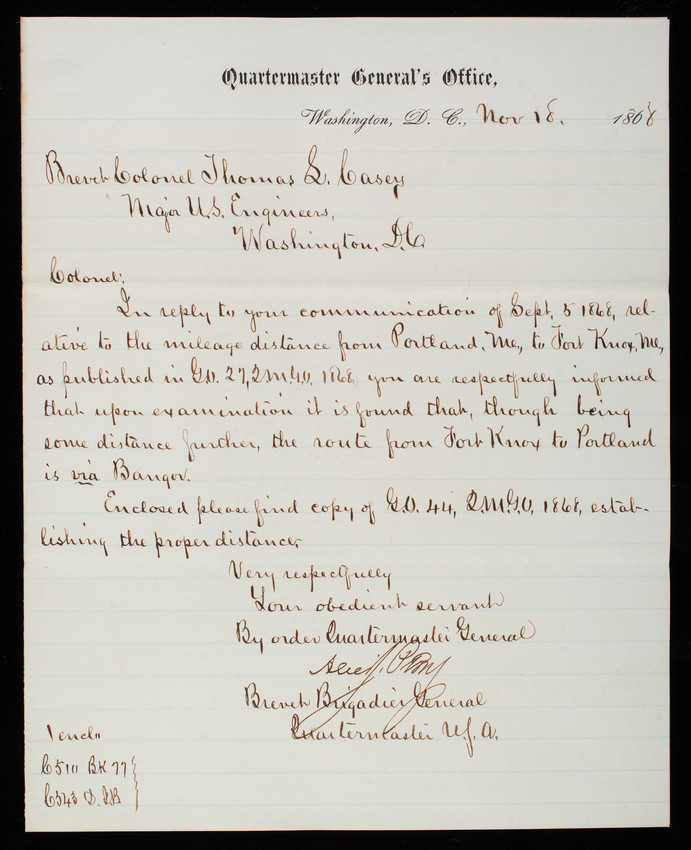 Quartermaster General's Office,
Washington, D. C., Nov 18. 1868
Brevet Colonel Thomas L. Casey
Major U.S. Engineers,
Washington, D.C
Colonel:
In reply to your communication of Sept. 5 1868, rel-
ative to the mileage distance from Portland, Me, to Fort Knox, Me,
as published in G.O. 27, Q.M.G.O. 1868, you are respectfully informed
that upon examination it is found that, though being
some distance further, the route from Fort Knox to Portland
is via Bangor.
Enclosed please find copy of G.O. 44, Q.M.G.O, 1868, estab-
lishing the proper distance.
Very respectfully
Your obedient servant
By order Quartermaster General
Brevet Brigadier General
Quartermaster U.S.A.
1 enclo
C510 BK 77
C543 D.